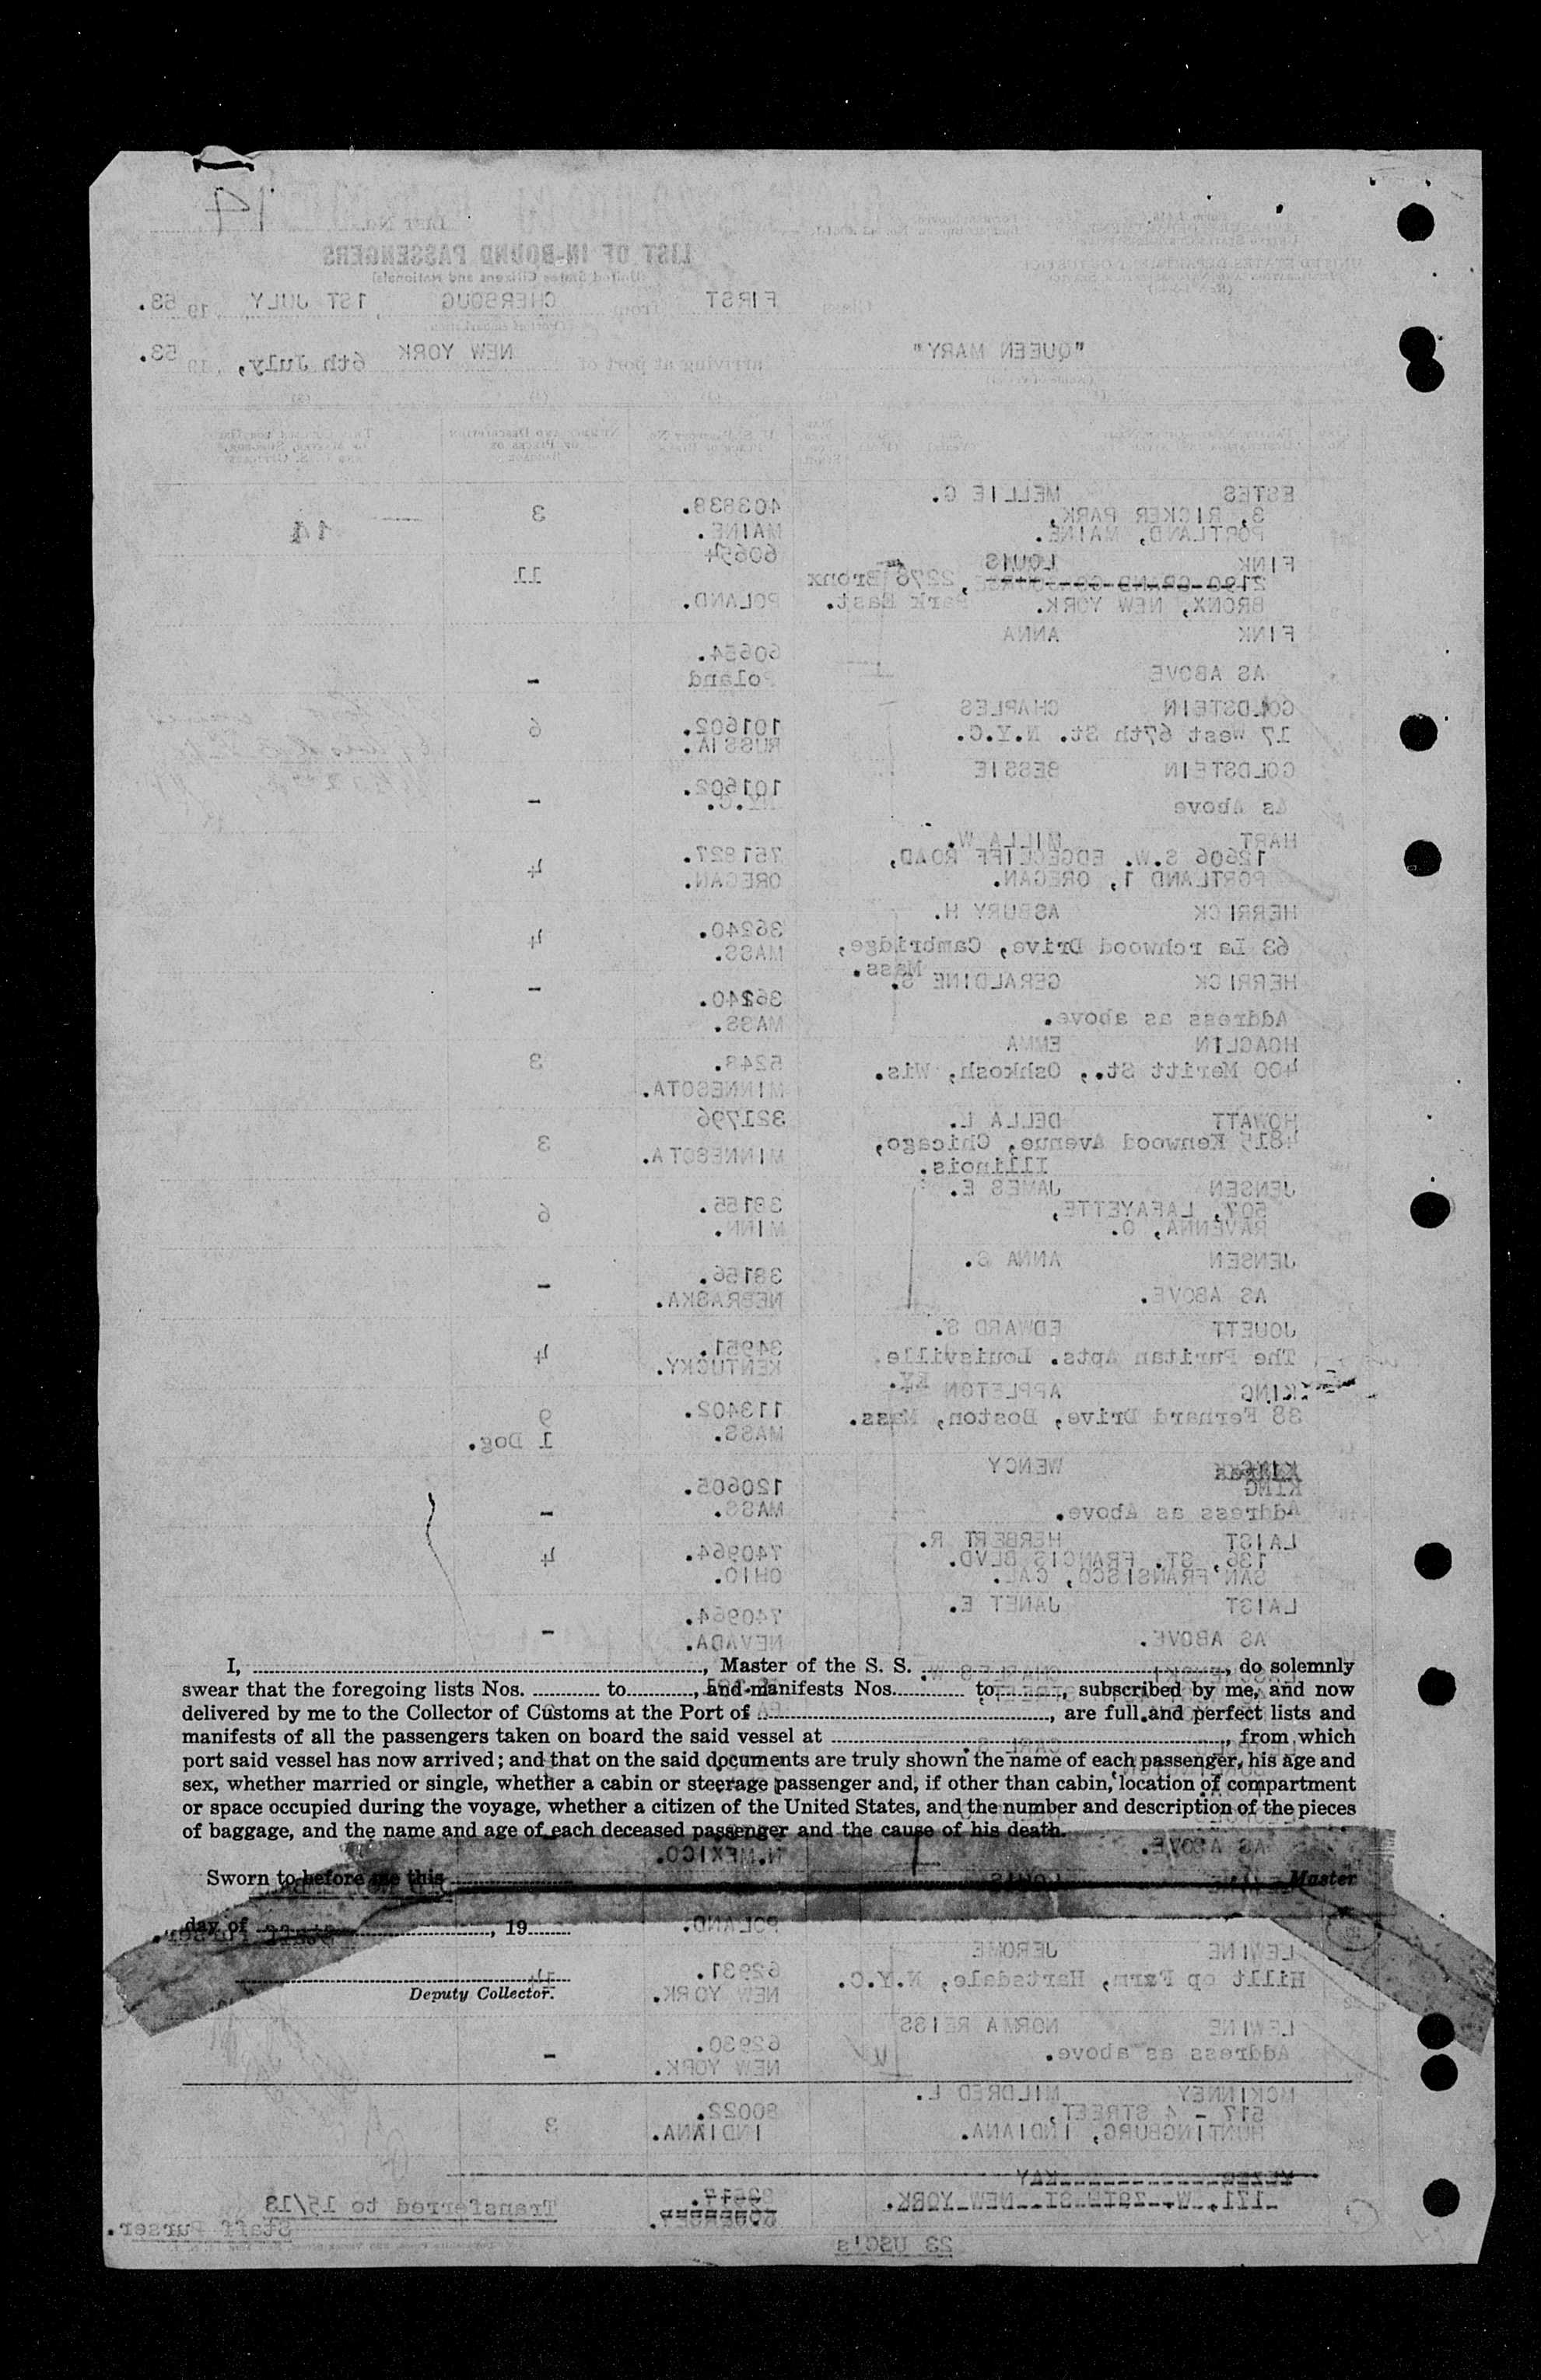 LIST No. 14
LIST OF IN-BOUND PASSENGERS
(United States Citizens and Nationals)
Class FIRST from CHERBOUG, 1ST JULY, 19 53.
"QUEEN MARY" arriving at port of NEW YORK 6th July, 19 53.
ESTES MELLIE C. 403838. 3 14
3, RICKER PARK,
PORTLAND, MAINE. MAINE.
FINK LOUIS 60654 11
2190 GRAND CONCOURSE, 2276 Bronx
BRONX, NEW YORK. Park East. POLAND.
FINK ANNA 60654. -
AS ABOVE Poland
GOLDSTEIN CHARLES 101602. 6
17 West 67th St. N.Y.C. RUSSIA.
GOLDSTEIN BESSIE 101602. -
As Above N.Y.C.
HART MILLA W. 751827. 4
12606 S.W. EDGECLIFF ROAD,
PORTLAND 1, OREGAN. OREGAN.
HERRICK ASBURY H. 36240. 4
63 La rchwood Drive, Cambridge,
Mass. MASS.
HERRICK GERALDINE S. 36240. -
Address as above. MASS.
HOAGLIN EMMA 5248. 3
400 Merritt St., Oshkosh, Wis. MINNESOTA.
HOWATT DELLA L. 321796 3
4815 Kenwood Avenue, Chicago,
Illinois. MINNESOTA.
JENSEN JAMES E. 38155. 6
507, LAFAYETTE,
RAVENNA, O. MINN.
JENSEN ANNA S. 38156. -
AS ABOVE. NEBRASKA.
JOUETT EDWARD S. 34951. 4
The Puritan Apts. Louisville
KY. KENTUCKY.
KING APPLETON 113402. 9
38 Fernard Drive, Boston, Mass. MASS. 1 Dog.
KING WENCY 120605. -
KING
Address as Above. MASS.
LAIST HERBERT R. 740964. 4
136, ST. FRANCIS BLVD.
SAN FRANSISCO, CAL. OHIO.
LAIST JANET E. 740964. -
AS ABOVE. NEVADA.
I, , Master of the S. S. , do solemnly
swear that the foregoing lists Nos. to , and manifests Nos. to , subscribed by me, and now
delivered by me to the Collector of Customs at the Port of , are full and perfect lists and
manifests of all the passengers taken on board the said vessel at , from which
port said vessel has now arrived; and that on the said documents are truly shown the name of each passenger, his age and
sex, whether married or single, whether a cabin or steerage passenger and, if other than cabin, location of compartment
or space occupied during the voyage, whether a citizen of the United States, and the number and description of the pieces
of baggage, and the name and age of each deceased passenger and the cause of his death.
AS ABOVE. N.MEXICO.
Sworn to before me this Master
day of , 19
POLAND.
LEWINE JEROME 62931.
Hillt op Farm, Hartsdale, N.Y.C. NEW YORK.
Deputy Collector.
LEWINE NORMA REISS 62930. -
Address as above. NEW YORK.
MCKINNEY MILDRED L. 80022. 3
517 - 4 STREET,
HUNTINGBURG, INDIANA. INDIANA.
KAY
171, W. 79TH ST. NEW YORK. Transferred to 15/13
Staff Purser.
23 USC's